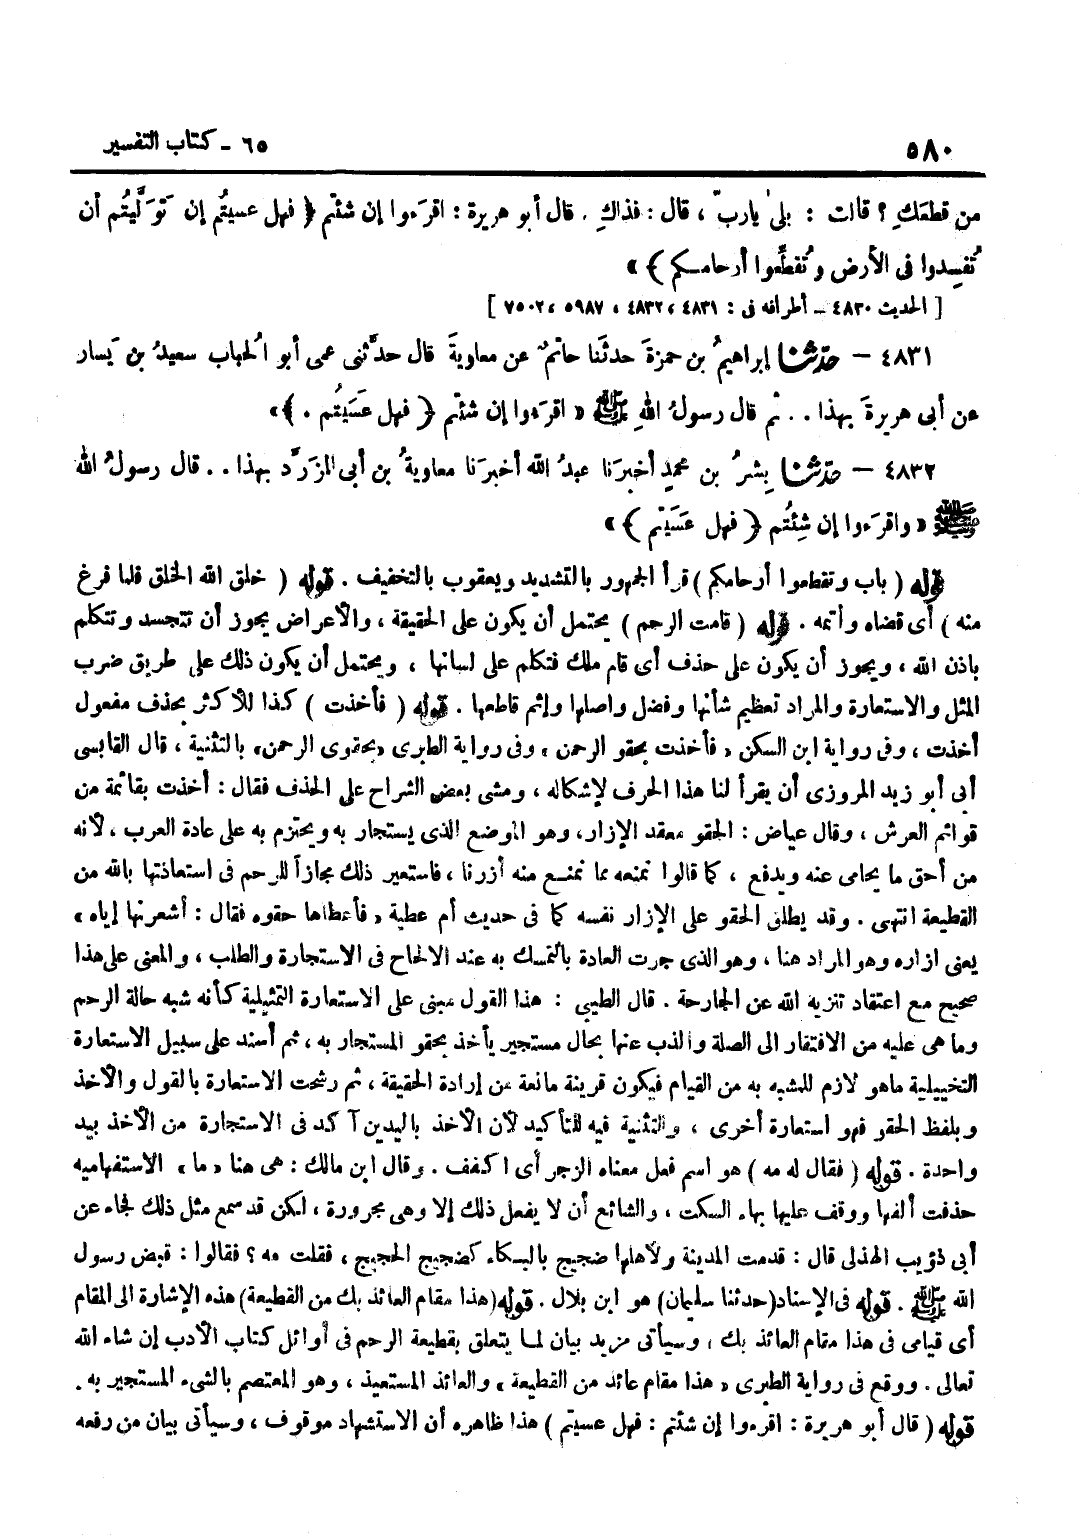 ٥٨٠
٦٥ - كتاب التفسير
من قطعَكِ ؟ قالت : بلى ياربّ ، قال : فذاكِ . قال أبو هريرة : اقرَءوا إن شئتم ﴿ فهل عسيتُم إن تَوَلَّيتُم أن
تُفسِدوا فى الأرض وتُقطِّعوا أرحامـكم ﴾ »
[ الحديث ٤٨٣٠ - أطرافه فى : ٤٨٣١ ، ٤٨٣٢ ، ٥٩٨٧ ، ٧٥٠٢ ]
٤٨٣١ - حدّثنا إبراهيمُ بن حمزةَ حدثَنا حاتمٌ عن معاويةَ قال حدَّثنى عمى أبو الحُباب سعيدُ بن يَسار
عن أبى هريرةَ بهذا . . ثم قال رسولُ اللهِ ﷺ « اقرَءوا إن شئتم ﴿ فهل عَسَيتُم . ﴾ »
٤٨٣٢ - حدّثنا بِشرُ بن محمدٍ أخبرَنا عبدُ الله أخبرَنا معاويةُ بن أبى المزَرَّد بهذا . . قال رسولُ الله
ﷺ « واقرَءوا إن شِئتُم ﴿ فهل عَسَيْتم ﴾ »
قوله ( باب وتقطعوا أرحامكم ) قرأ الجمهور بالتشديد ويعقوب بالتخفيف . قوله ( خلق الله الخلق فلما فرغ
منه ) أى قضاه وأتمه . قوله ( قامت الرحم ) يحتمل أن يكون على الحقيقة ، والأعراض يجوز أن تتجسد وتتكلم
باذن الله ، ويجوز أن يكون على حذف أى قام ملك فتكلم على لسانها ، ويحتمل أن يكون ذلك على طريق ضرب
المثل والاستعارة والمراد تعظيم شأنها وفضل واصلها وإثم قاطعها . قوله ( فأخذت ) كذا للأكثر بحذف مفعول
أخذت ، وفى رواية ابن السكن « فأخذت بحقو الرحمن » وفى رواية الطبرى «بحقوى الرحمن» بالتثنية ، قال القابسى
أبى أبو زيد المروزى أن يقرأ لنا هذا الحرف لإشكاله ، ومشى بعض الشراح على الحذف فقال : أخذت بقائمة من
قوائم العرش ، وقال عياض : الحقو معقد الإزار، وهو الموضع الذى يستجار به ويحتزم به على عادة العرب ، لأنه
من أحق ما يحامى عنه ويدفع ، كما قالوا نمنعه مما نمنـع منه أزرنا ، فاستعير ذلك مجازاً للرحم فى استعاذتها بالله من
القطيعة انتهى . وقد يطلق الحقو على الإزار نفسه كما فى حديث أم عطية « فأعطاها حقوه فقال : أشعرنها إياه »
يعنى ازاره وهو المراد هنا ، وهو الذى جرت العادة بالتمسك به عند الالحاح فى الاستجارة والطلب ، والمعنى على هذا
صحيح مع اعتقاد تنزيه الله عن الجارحة . قال الطيبى : هذا القول مبنى على الاستعارة التمثيلية كأنه شبه حالة الرحم
وما هى عليه من الافتقار الى الصلة والذب عنها بحال مستجير يأخذ بحقو المستجار به ، ثم أسند على سبيل الاستعارة
التخييلية ماهو لازم للمشبه به من القيام فيكون قرينة مانعة من إرادة الحقيقة ، ثم رشحت الاستعارة بالقول والأخذ
وبلفظ الحقو فهو استعارة أخرى ، والتثنية فيه للتأكيد لأن الأخذ باليدين آكد فى الاستجارة من الأخذ بيد
واحدة . قوله ( فقال له مه ) هو اسم فعل معناه الزجر أى اكفف . وقال ابن مالك : هى هنا « ما » الاستفهامية
حذفت ألفها ووقف عليها بهاء السكت ، والشائع أن لا يفعل ذلك إلا وهى مجرورة ، لكن قد سمع مثل ذلك فجاء عن
أبى ذؤيب الهذلى قال : قدمت المدينة ولأهلها ضجيج بالبـكاء كضجيج الحجيج ، فقلت مه ؟ فقالوا : قبض رسول
الله ﷺ . قوله فى الإسناد(حدثنا سليمان) هو ابن بلال . قوله(هذا مقام العائذ بك من القطيعة) هذه الإشارة الى المقام
أى قيامى فى هذا مقام العائذ بك ، وسيأتى مزيد بيان لما يتعلق بقطيعة الرحم فى أوائل كتاب الأدب إن شاء الله
تعالى . ووقع فى رواية الطبرى « هذا مقام عائذ من القطيعة » والعائذ المستعيذ ، وهو المعتصم بالشىء المستجير به .
قوله ( قال أبو هريرة : اقرءوا إن شئتم : فهل عسيتم ) هذا ظاهره أن الاستشهاد موقوف ، وسيأتى بيان من رفعه